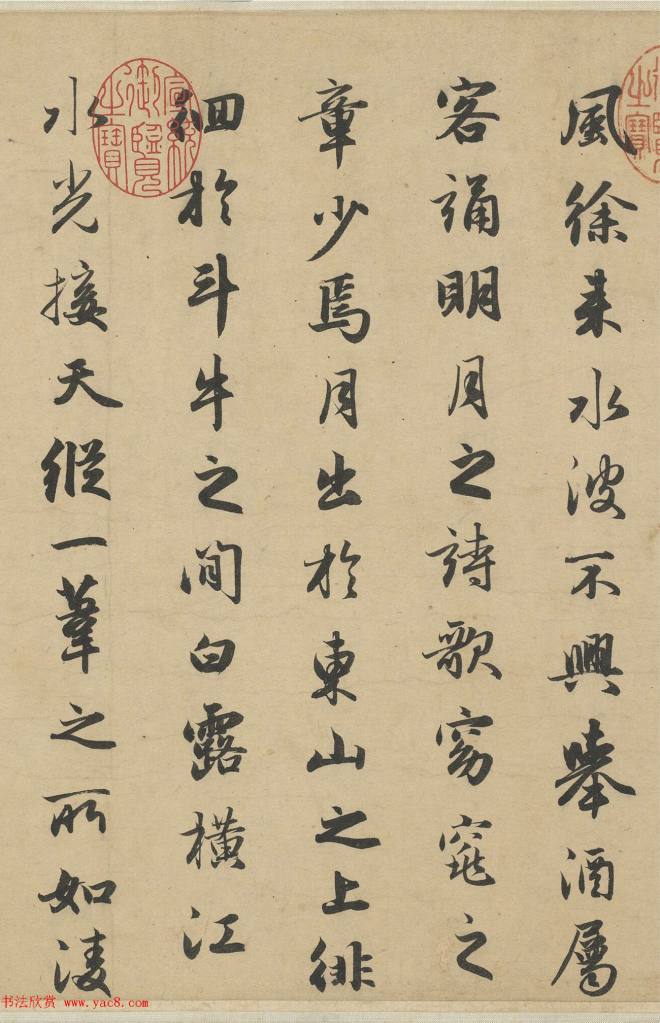 風徐来水波不興舉酒屬
客誦明月之詩歌窈窕之
章少焉月出於東山之上徘
徊於斗牛之間白露橫江
水光接天縱一葦之所如凌
御覽之寶
宣統御覽之寶
书法欣赏 www.yac8.com